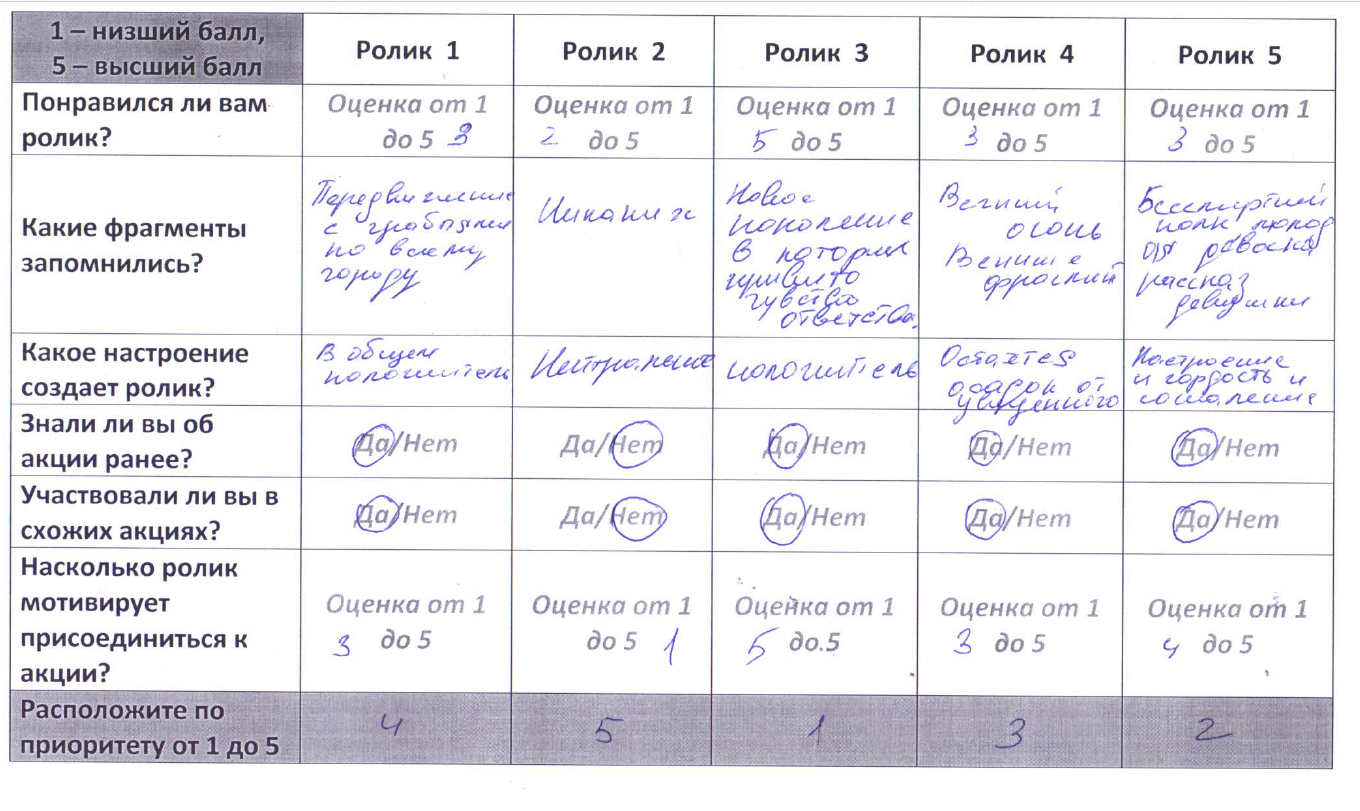 1 – низший балл,
5 – высший балл
Ролик 1
Ролик 2
Ролик 3
Ролик 4
Ролик 5
Понравился ли вам
ролик?
Оценка от 1
до 5 3
Оценка от 1
2 до 5
Оценка от 1
5 до 5
Оценка от 1
3 до 5
Оценка от 1
3 до 5
Какие фрагменты
запомнились?
Передвижение
с
по всему
городу
Никаких
Новое
поколение
в котором
привито
чувство
ответства.
Вечный
огонь
Вечные
Бессмертный
полк
рассказ
девушки
Какое настроение
создает ролик?
В общем
положительн
Нейтральное
положитель
Остаётся
осадок от
увиденного
Настроение
и гордость и
сожаление
Знали ли вы об
акции ранее?
Да/Нет
Да/Нет
Да/Нет
Да/Нет
Да/Нет
Участвовали ли вы в
схожих акциях?
Да/Нет
Да/Нет
Да/Нет
Да/Нет
Да/Нет
Насколько ролик
мотивирует
присоединиться к
акции?
Оценка от 1
3 до 5
Оценка от 1
до 5 1
Оценка от 1
5 до 5
Оценка от 1
3 до 5
Оценка от 1
4 до 5
Расположите по
приоритету от 1 до 5
4
5
1
3
2